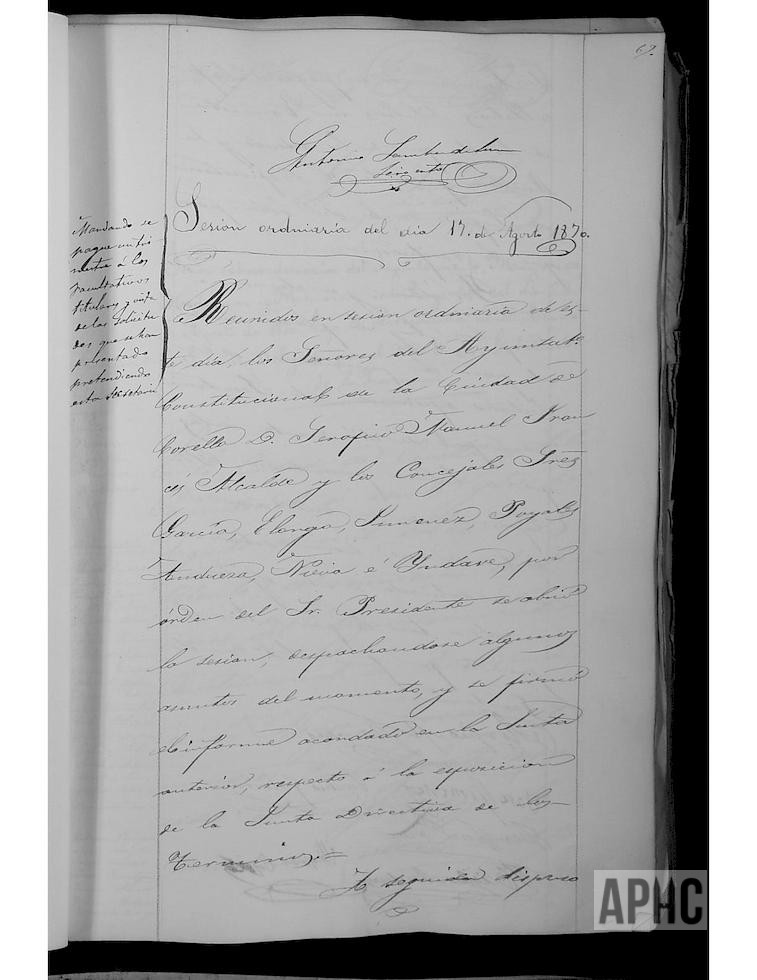 67.
Antonio
Sesion ordinaria del dia 17. de Agosto 1870.
Mandando se
pague un tri
mestre á los
facultativos
titulares y vista
de las solicitu
des que se han
presentado
pretendiendo
esta Secretaria
Reunidos en sesion ordinaria de es-
te dia, los Señores del Ayuntato.
Constitucional de la Ciudad de
Corella D. Serafino Manuel Fran
cés Alcalde y los Concejales Sres
Garcia, Elango, Jimenez, Poyales
Andueza, Nieva é Yndave, por
órden del Sr. Presidente se abrió
la sesion, despachandose algunos
asuntos del momento, y se firmó
el informe acordado en la Junta
anterior, respecto á la esposicion
de la Junta Directiva de los
Terminos.=
A seguida dispuso
APHC